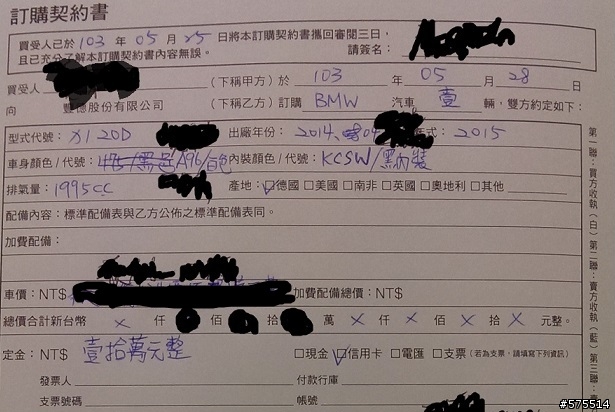 訂購契約書
買受人已於 103 年 05 月 25 日將本訂購契約書攜回審閱三日，
且已充分了解本訂購契約書內容無誤。 請簽名：
買受人 (下稱甲方) 於 103 年 05 月 28 日
向 豐德股份有限公司 (下稱乙方) 訂購 BMW 汽車 壹 輛，雙方約定如下：
型式代號：X1 20D 出廠年份：2014. 年式：2015
車身顏色/代號： A96/白色 內裝顏色/代號：KCSW/黑內裝
排氣量：1995CC 產地：☑德國 □美國 □南非 □英國 □奧地利 □其他
配備內容：標準配備表與乙方公佈之標準配備表同。
加費配備：
車價：NT$ 加費配備總價：NT$
總價合計新台幣 × 仟 佰 拾 萬 × 仟 × 佰 × 拾 × 元整。
定金：NT$ 壹拾萬元整 □現金 ☑信用卡 □電匯 □支票 (若為支票，請填寫下列資訊)
發票人 付款行庫
支票號碼 帳號
第一聯：買方收執(白) 第二聯：賣方收執(藍) 第三聯：
#575514